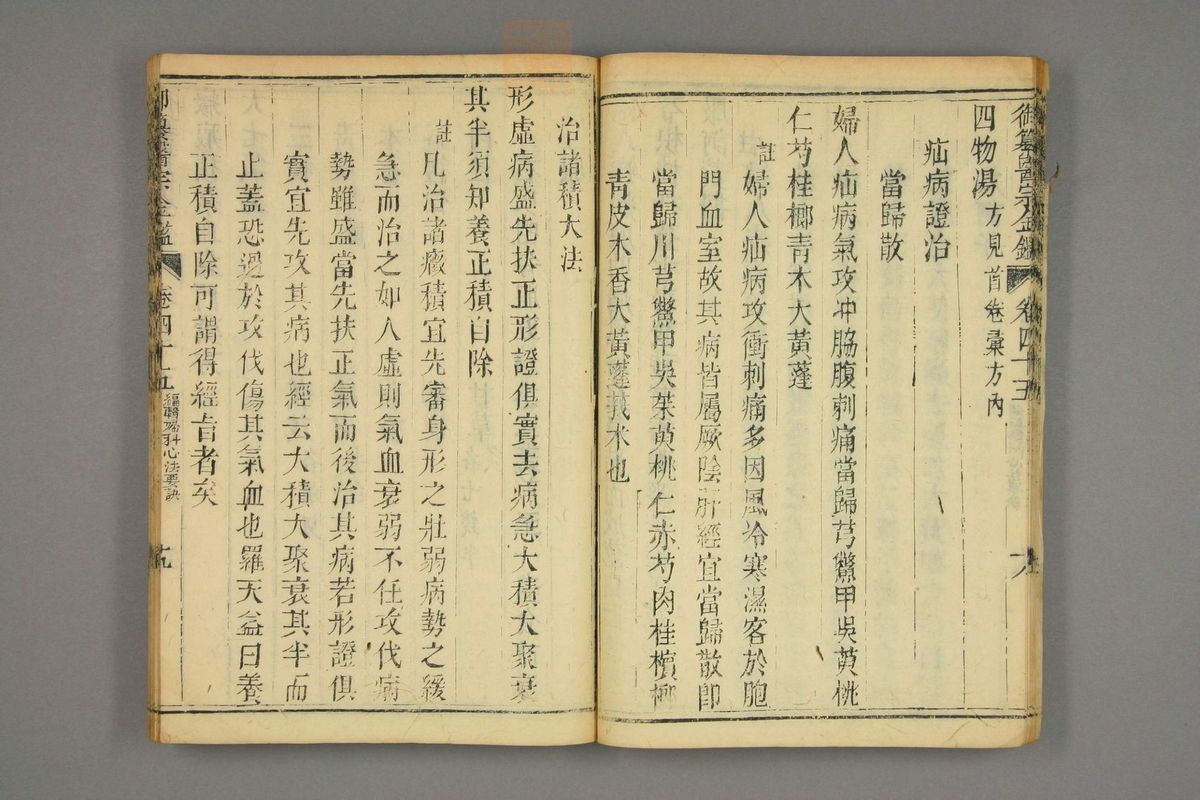 御纂醫宗金鑑 卷四十五
四物湯 方見首卷彙方內
疝病證治
當歸散
婦人疝病氣攻冲脇腹刺痛當歸芎鱉甲吳茰桃
仁芍桂榔青木大黃蓬
註 婦人疝病攻衝刺痛多因風冷寒濕客於胞
門血室故其病皆屬厥陰肝經宜當歸散卽
當歸川芎鱉甲吳茱萸桃仁赤芍肉桂檳榔
青皮木香大黃蓬莪朮也
治諸積大法
形虛病盛先扶正形證俱實去病急大積大聚衰
其半須知養正積自除
註 凡治諸癥積宜先審身形之壯弱病勢之緩
急而治之如人虛則氣血衰弱不任攻伐病
勢雖盛當先扶正氣而後治其病若形證俱
實宜先攻其病也經云大積大聚衰其半而
止蓋恐過於攻伐傷其氣血也羅天益曰養
正積自除可謂得經旨者矣
御纂醫宗金鑑 卷四十五 編輯婦科心法要訣 十九